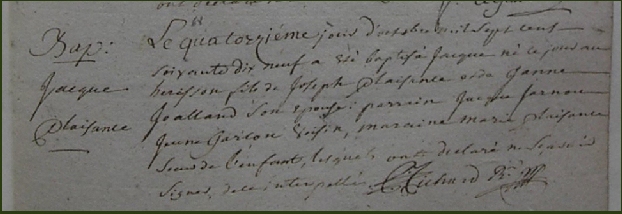 Bap:
Jacque
Plaisance
Le quatorziéme jour d'octobre mil sept cent
soixante dix neuf a été baptisé Jacque né le jour au
herisson fils de Joseph Plaisance et de Janne
Joalland son epouse: parrain Jacque
jeune garson voisin, maraine marie plaisance
soeur de l'enfant, lesquels ont declaré ne sçavoir
signer, de ce interpellé Richard